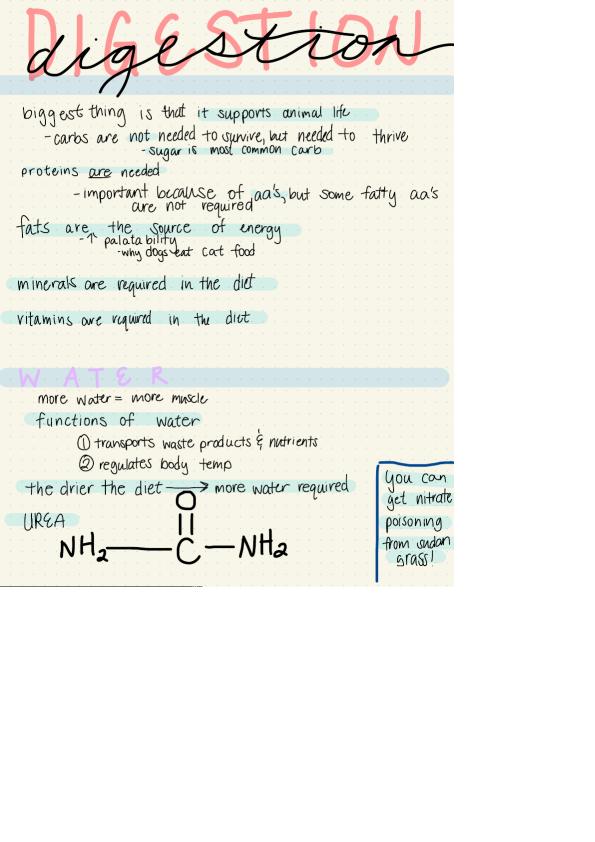 DIGESTION
digestion
biggest thing is that it supports animal life
- carbs are not needed to survive, but needed to thrive
- sugar is most common carb
proteins are needed
- important because of aa's, but some fatty aa's
are not required
fats are the source of energy
- ↑ palatability
- why dogs eat cat food
minerals are required in the diet
vitamins are required in the diet
WATER
more water = more muscle
functions of water
① transports waste products & nutrients
② regulates body temp
the drier the diet → more water required
UREA
O
NH₂ — C — NH₂
You can
get nitrate
poisoning
from sudan
grass!